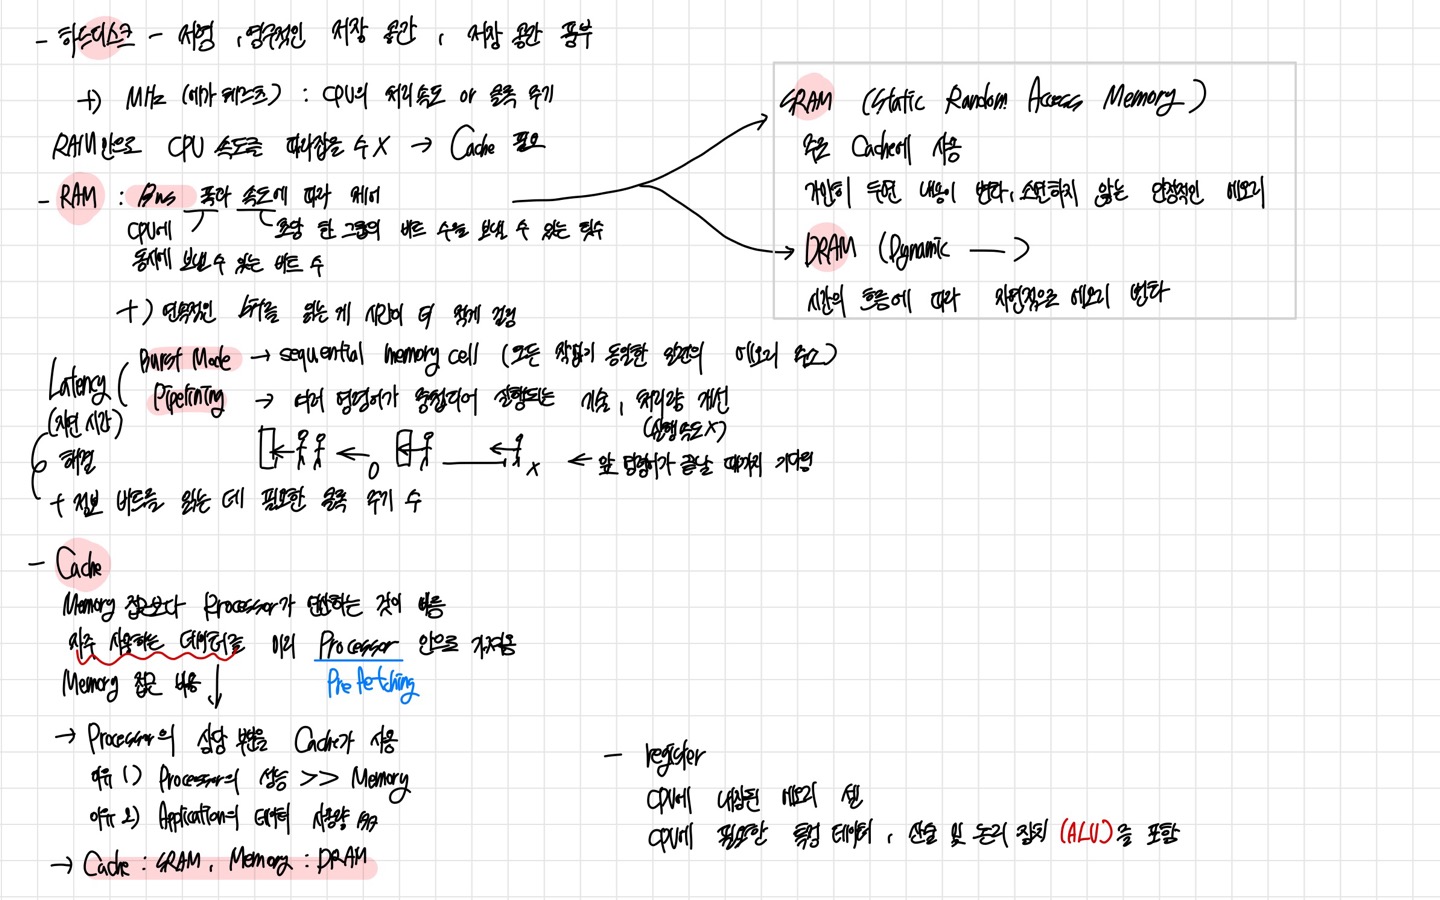 - 하드디스크 - 저렴, 영구적인 저장 공간, 저장 공간 풍부
+) MHz (메가 헤르츠) : CPU의 처리속도 or 클록 주기
RAM만으로 CPU 속도를 따라잡을 수 X → Cache 필요
- RAM : Bus 폭과 속도에 따라 제어
CPU에 동시에 보낼 수 있는 비트 수
초당 한 그룹의 비트 수를 보낼 수 있는 횟수
+) 연속적인 bit를 읽는 게 시간이 더 적게 걸림
SRAM (Static Random Access Memory)
주로 Cache에 사용
가만히 두면 내용이 변하, 소멸하지 않는 안정적인 메모리
DRAM (Dynamic ―)
시간의 흐름에 따라 자연적으로 메모리 변화
Latency (지연 시간)
해결
Burst Mode → sequential memory cell (모든 작업가 동일한 일련의 메모리 주소)
Pipelining → 여러 명령어가 중첩되어 실행되는 기술, 처리량 개선
(실행 속도 X)
O X ← 앞 명령어가 끝날 때까지 기다림
+ 정보 비트를 읽는 데 필요한 클록 주기 수
- Cache
Memory 접근보다 Processor가 연산하는 것이 빠름
자주 사용하는 데이터를 미리 Processor 안으로 가져옴
Prefetching
Memory 접근 비용 ↓
→ Processor의 상당 부분을 Cache가 사용
이유 1) Processor의 성능 >> Memory
이유 2) Application의 데이터 사용량 ↑↑
→ Cache : SRAM, Memory : DRAM
- register
CPU에 내장된 메모리 셀
CPU에 필요한 특정 데이터, 산술 및 논리 장치 (ALU)을 포함